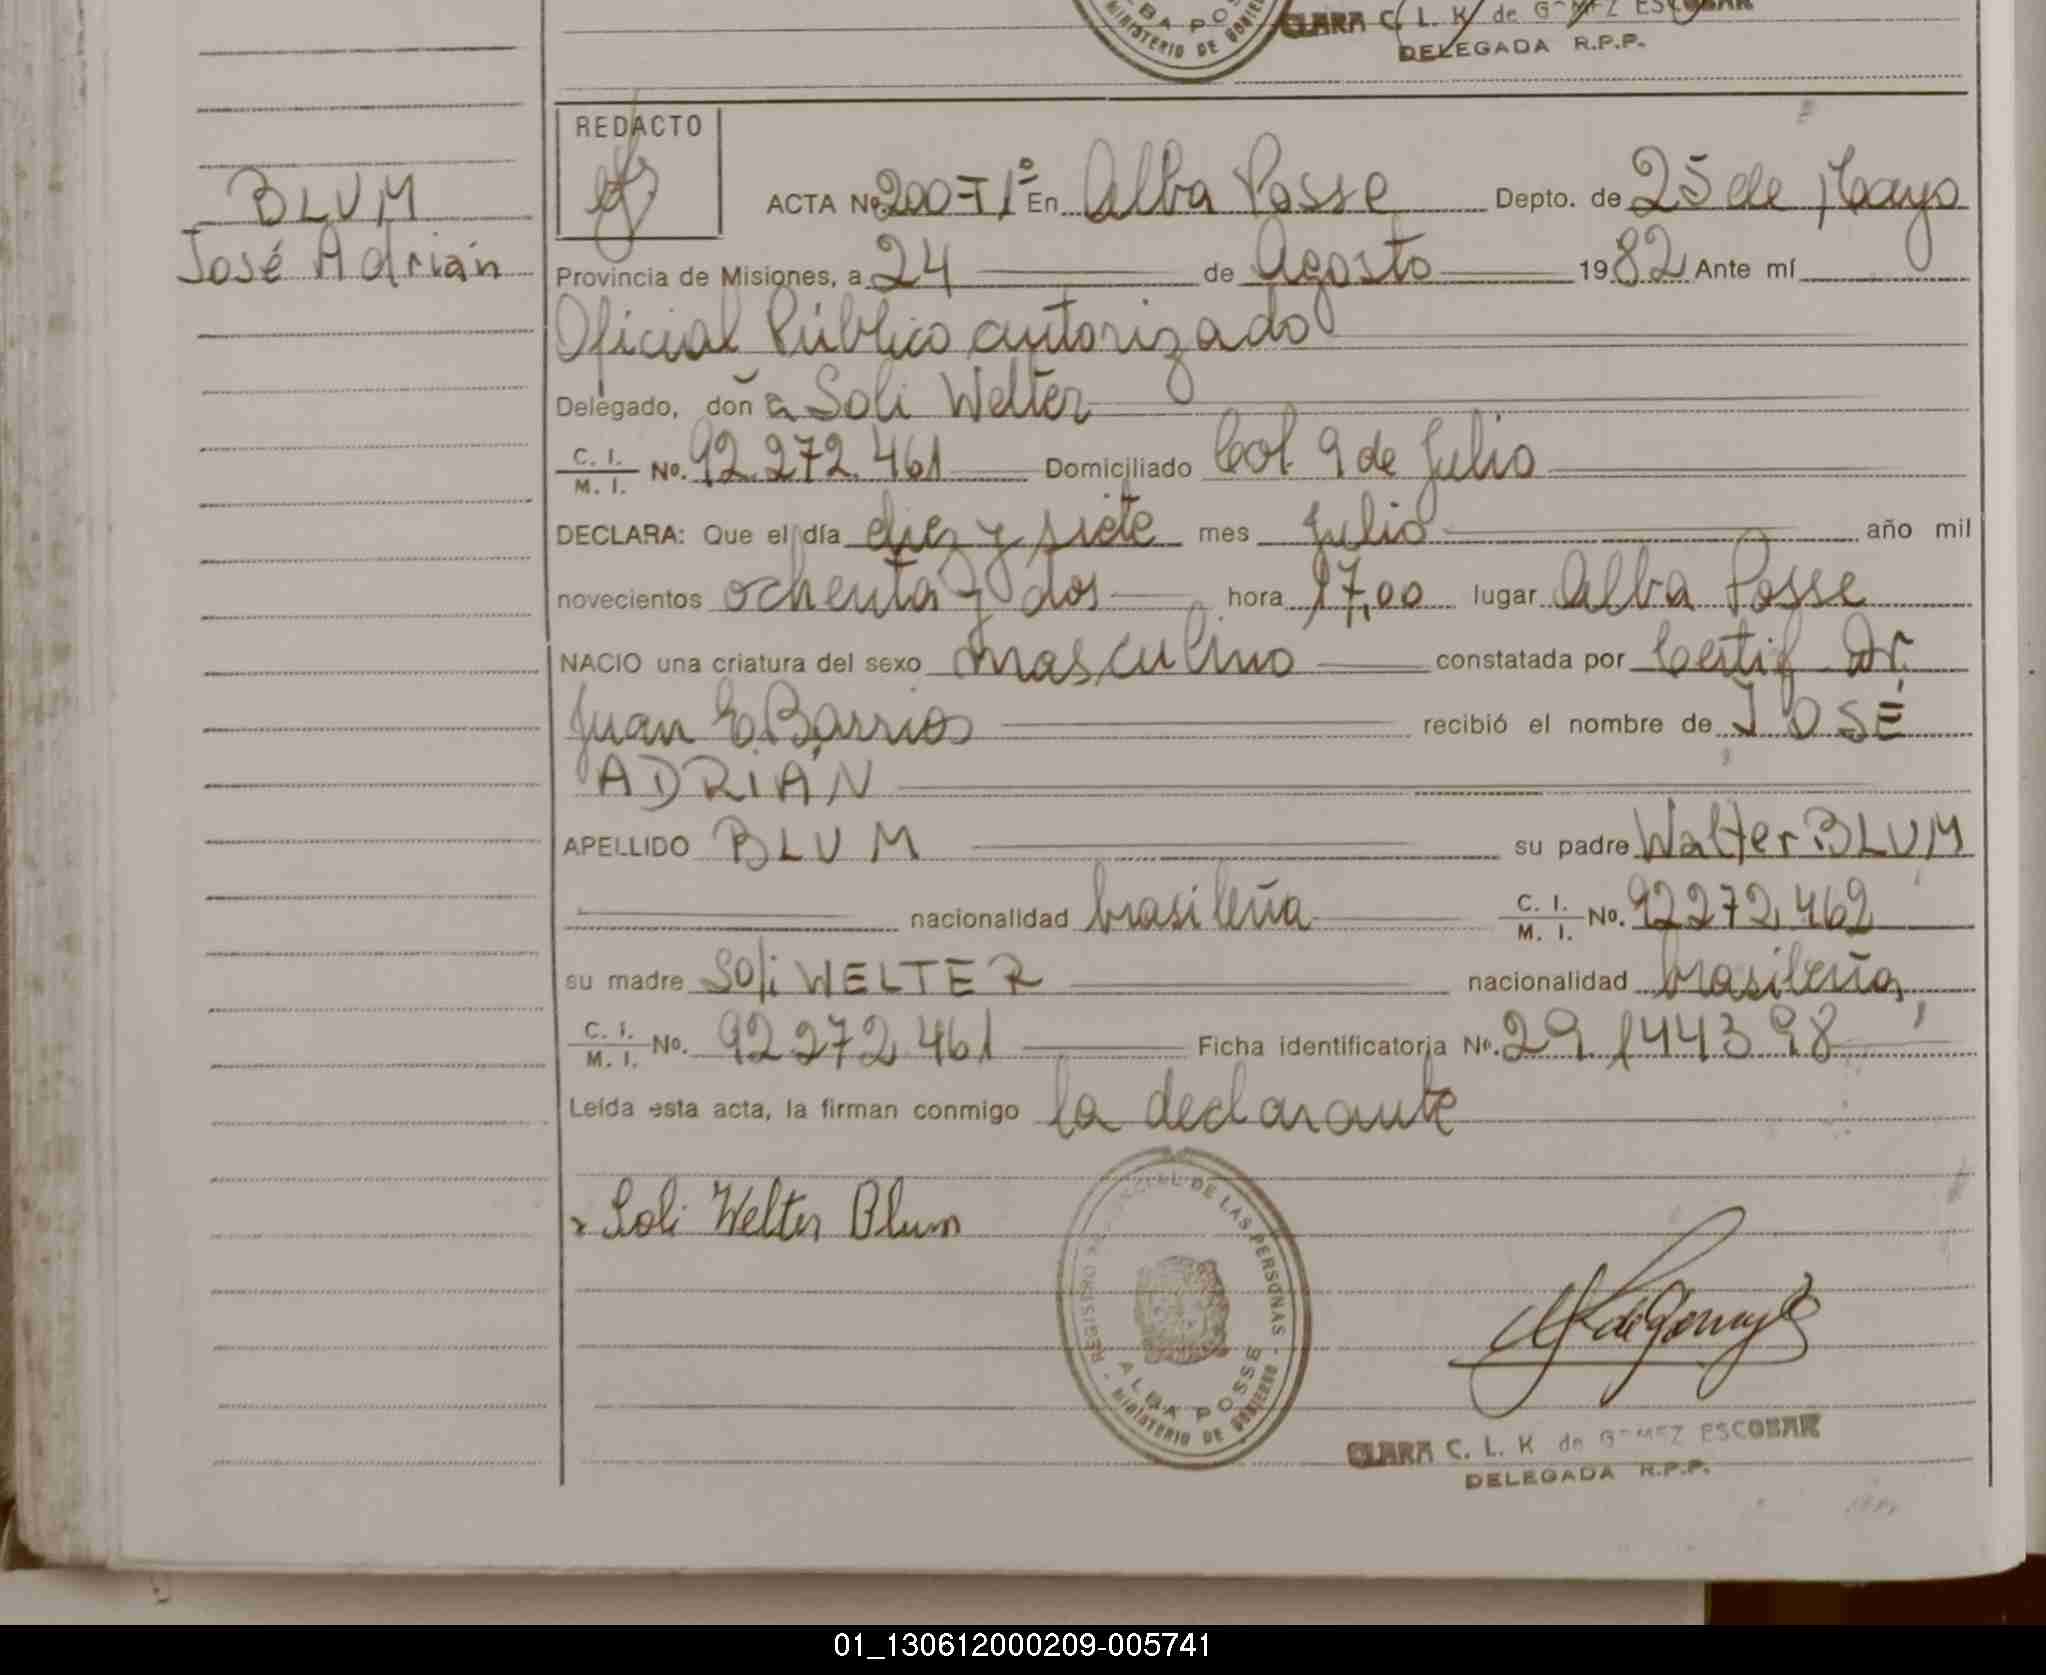 ALBA POSSE
MINISTERIO DE GOBIERNO
CLARA C. L. K. de GOMEZ ESCOBAR
DELEGADA R.P.P.
REDACTO
BLUM
José Adrián
ACTA Nº 200-T1º En Alba Posse Depto. de 25 de Mayo
Provincia de Misiones, a 24 de Agosto 1982 Ante mí
Oficial Público autorizado
Delegado, doña Soli Welter
C. I. / M. I. Nº. 92.272.461 Domiciliado Col 9 de Julio
DECLARA: Que el día diez y siete mes Julio año mil
novecientos ochenta y dos hora 17,00 lugar Alba Posse
NACIO una criatura del sexo masculino constatada por Certif Dr.
Juan E. Barrios recibió el nombre de JOSÉ
ADRIÁN
APELLIDO BLUM su padre Walter BLUM
nacionalidad brasileña C. I. / M. I. Nº. 92272,462
su madre Soli WELTER nacionalidad brasileña,
C. I. / M. I. Nº. 92.272.461 Ficha identificatoria Nº. 29.144398
Leída esta acta, la firman conmigo la declarante
Soli Welter Blum
REGISTRO PROVINCIAL DE LAS PERSONAS
ALBA POSSE
MINISTERIO DE GOBIERNO
CLARA C. L. K de GOMEZ ESCOBAR
DELEGADA R.P.P.
01_130612000209-005741